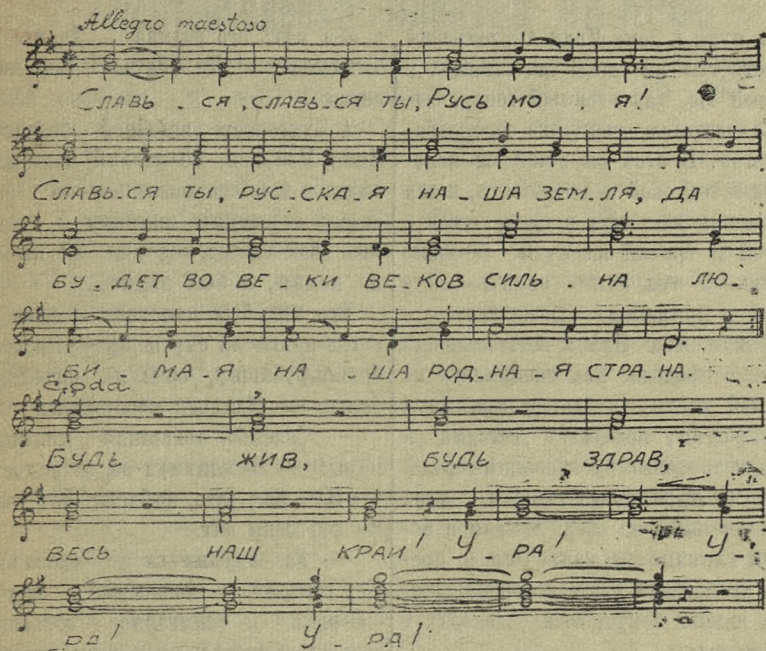 Allegro maestoso
СЛАВЬ - СЯ, СЛАВЬ-СЯ ТЫ, РУСЬ МО Я!
СЛАВЬ-СЯ ТЫ, РУС-СКА-Я НА-ША ЗЕМ-ЛЯ, ДА
БУ-ДЕТ ВО ВЕ-КИ ВЕ-КОВ СИЛЬ-НА ЛЮ-
-БИ-МА-Я НА-ША РОД-НА-Я СТРА-НА.
Coda
БУДЬ ЖИВ, БУДЬ ЗДРАВ,
ВЕСЬ НАШ КРАЙ! У-РА! У-
РА! У-РА!